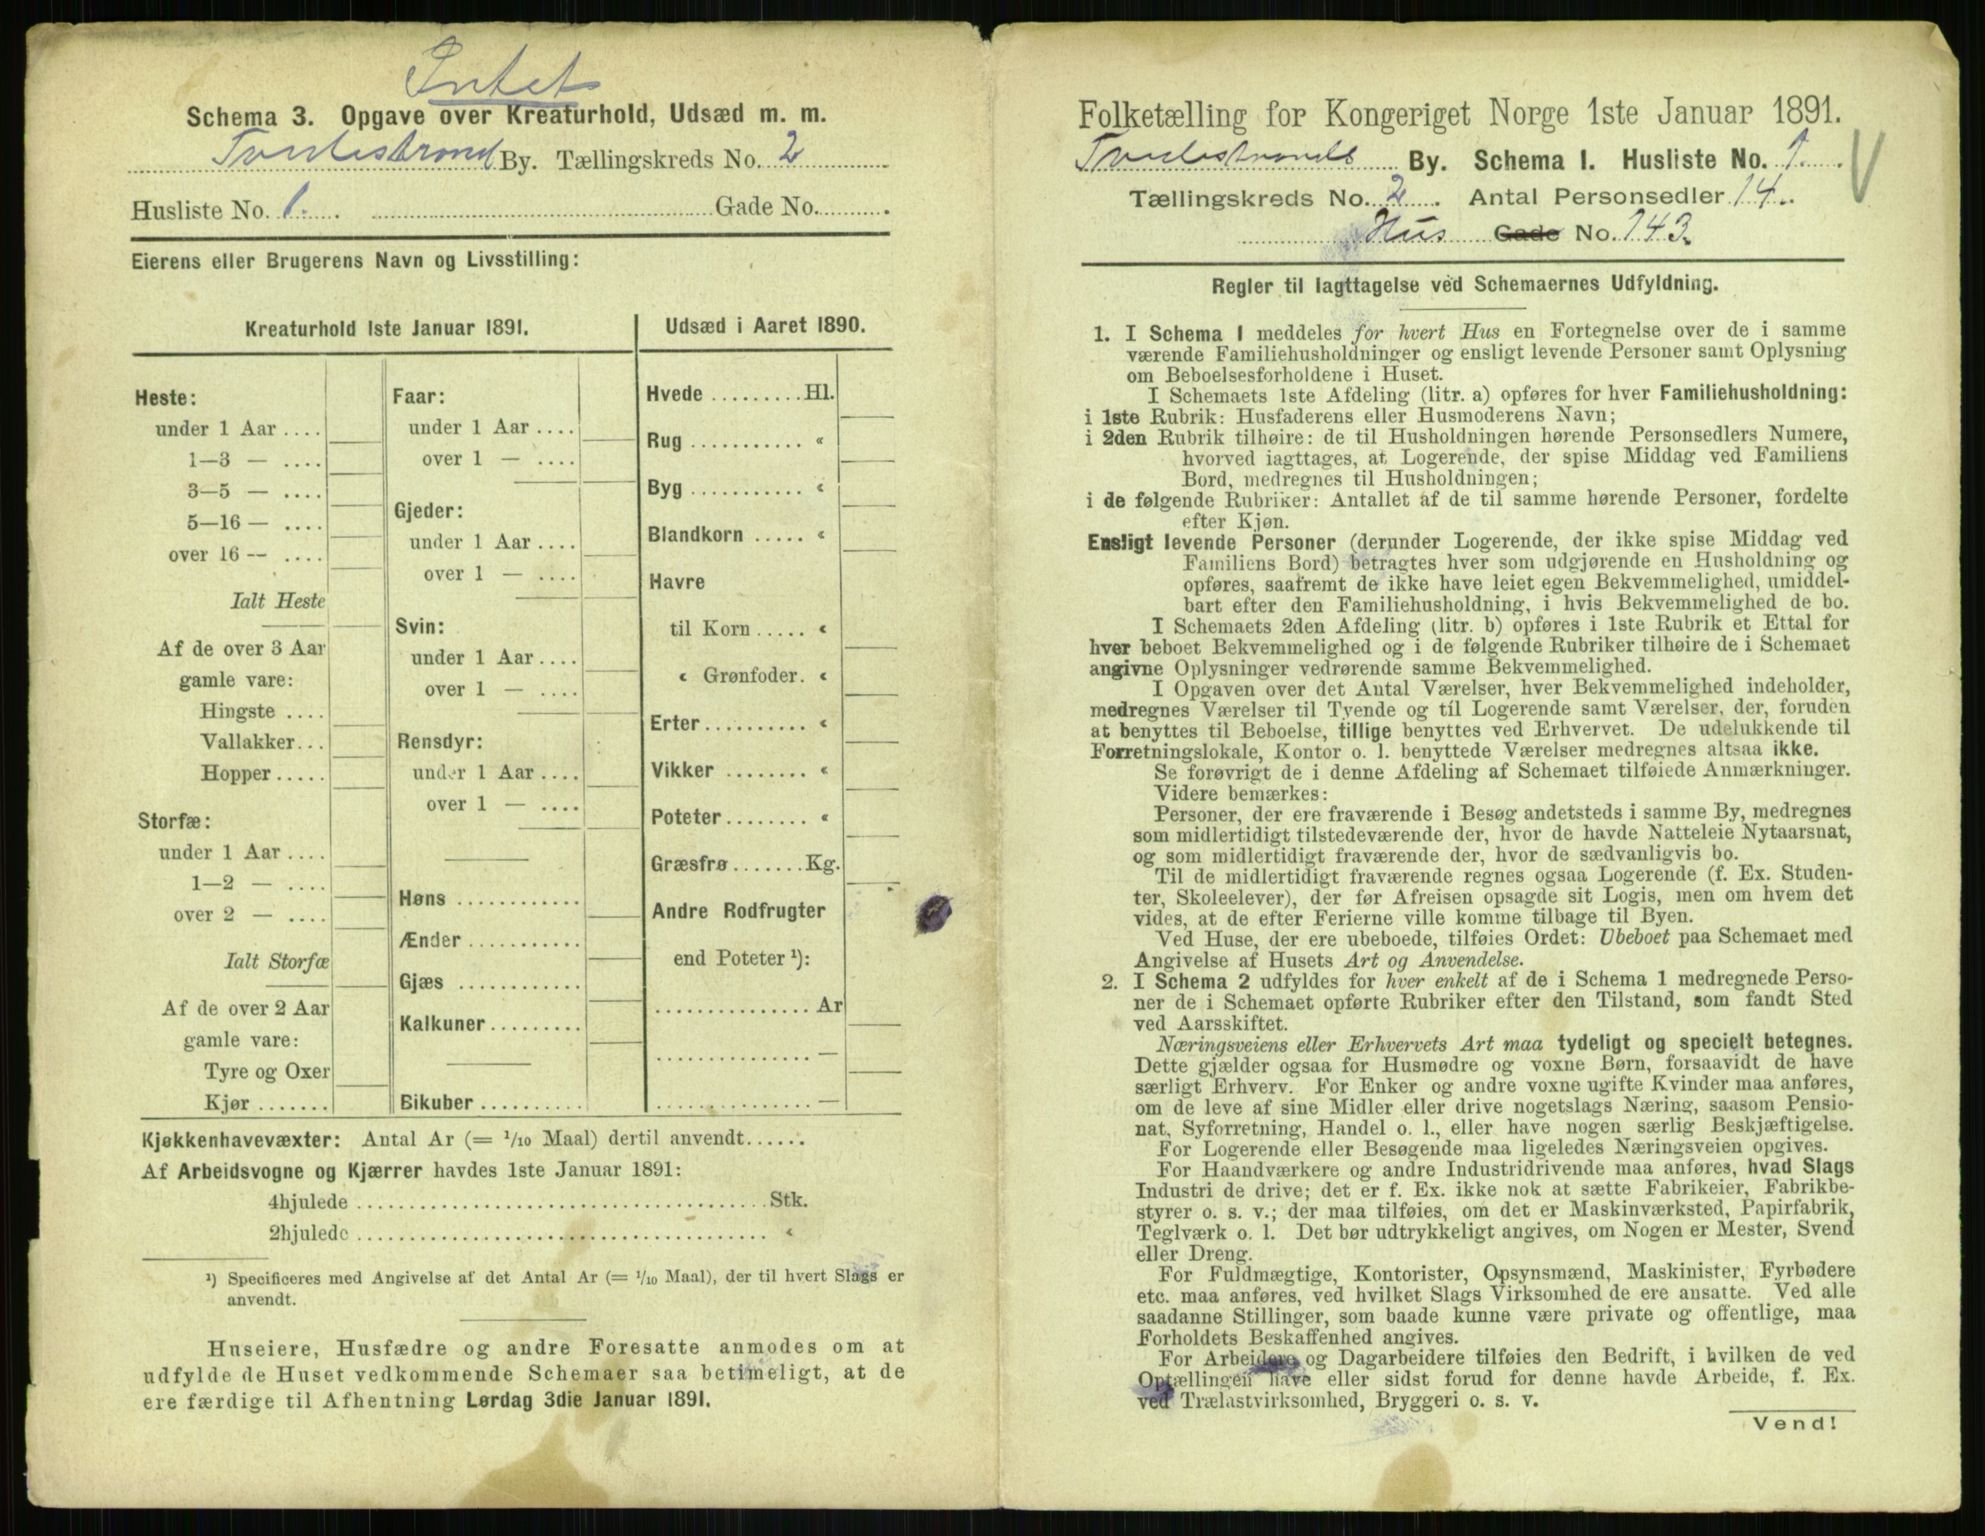 Intet
Schema 3. Opgave over Kreaturhold, Udsæd m. m.
Tvedestrand By. Tællingskreds No. 2
Husliste No. 1. Gade No.
Eierens eller Brugerens Navn og Livsstilling:
Kreaturhold 1ste Januar 1891.
Heste:
under 1 Aar ....
1—3 — ....
3—5 — ....
5—16 — ....
over 16 — ....
Ialt Heste
Af de over 3 Aar
gamle vare:
Hingste ....
Vallakker...
Hopper.....
Storfæ:
under 1 Aar ....
1—2 — ....
over 2 — ....
Ialt Storfæ
Af de over 2 Aar
gamle vare:
Tyre og Oxer
Kjør .......
Faar:
under 1 Aar ....
over 1 — ....
Gjeder:
under 1 Aar ....
over 1 — ....
Svin:
under 1 Aar ....
over 1 — ....
Rensdyr:
under 1 Aar ....
over 1 — ....
Høns ............
Ænder ...........
Gjæs ............
Kalkuner.........
Bikuber ..........
Udsæd i Aaret 1890.
Hvede ......... Hl.
Rug ........... «
Byg ........... «
Blandkorn ..... «
Havre
til Korn ..... «
« Grønfoder. «
Erter.......... «
Vikker ........ «
Poteter ........ «
Græsfrø ....... Kg.
Andre Rodfrugter
end Poteter ¹):
............... Ar
............... —
............... —
Kjøkkenhavevæxter: Antal Ar (= 1/10 Maal) dertil anvendt......
Af Arbeidsvogne og Kjærrer havdes 1ste Januar 1891:
4hjulede ..................................... Stk.
2hjulede ..................................... «
¹) Specificeres med Angivelse af det Antal Ar (= 1/10 Maal), der til hvert Slags er
anvendt.
Huseiere, Husfædre og andre Foresatte anmodes om at
udfylde de Huset vedkommende Schemaer saa betimeligt, at de
ere færdige til Afhentning Lørdag 3die Januar 1891.
Folketælling for Kongeriget Norge 1ste Januar 1891.
Tvedestrands By. Schema I. Husliste No. 1.
Tællingskreds No. 2. Antal Personsedler 14.
Hus Gade No. 143.
Regler til Iagttagelse ved Schemaernes Udfyldning.
1. I Schema 1 meddeles for hvert Hus en Fortegnelse over de i samme
værende Familiehusholdninger og ensligt levende Personer samt Oplysning
om Beboelsesforholdene i Huset.
I Schemaets 1ste Afdeling (litr. a) opføres for hver Familiehusholdning:
i 1ste Rubrik: Husfaderens eller Husmoderens Navn;
i 2den Rubrik tilhøire: de til Husholdningen hørende Personsedlers Numere,
hvorved iagttages, at Logerende, der spise Middag ved Familiens
Bord, medregnes til Husholdningen;
i de følgende Rubriker: Antallet af de til samme hørende Personer, fordelte
efter Kjøn.
Ensligt levende Personer (derunder Logerende, der ikke spise Middag ved
Familiens Bord) betragtes hver som udgjørende en Husholdning og
opføres, saafremt de ikke have leiet egen Bekvemmelighed, umiddel-
bart efter den Familiehusholdning, i hvis Bekvemmelighed de bo.
I Schemaets 2den Afdeling (litr. b) opføres i 1ste Rubrik et Ettal for
hver beboet Bekvemmelighed og i de følgende Rubriker tilhøire de i Schemaet
angivne Oplysninger vedrørende samme Bekvemmelighed.
I Opgaven over det Antal Værelser, hver Bekvemmelighed indeholder,
medregnes Værelser til Tyende og til Logerende samt Værelser, der, foruden
at benyttes til Beboelse, tillige benyttes ved Erhvervet. De udelukkende til
Forretningslokale, Kontor o. l. benyttede Værelser medregnes altsaa ikke.
Se forøvrigt de i denne Afdeling af Schemaet tilføiede Anmærkninger.
Videre bemærkes:
Personer, der ere fraværende i Besøg andetsteds i samme By, medregnes
som midlertidigt tilstedeværende der, hvor de havde Natteleie Nytaarsnat,
og som midlertidigt fraværende der, hvor de sædvanligvis bo.
Til de midlertidigt fraværende regnes ogsaa Logerende (f. Ex. Studen-
ter, Skoleelever), der før Afreisen opsagde sit Logis, men om hvem det
vides, at de efter Ferierne ville komme tilbage til Byen.
Ved Huse, der ere ubeboede, tilføies Ordet: Ubeboet paa Schemaet med
Angivelse af Husets Art og Anvendelse.
2. I Schema 2 udfyldes for hver enkelt af de i Schema 1 medregnede Perso-
ner de i Schemaet opførte Rubriker efter den Tilstand, som fandt Sted
ved Aarsskiftet.
Næringsveiens eller Erhvervets Art maa tydeligt og specielt betegnes.
Dette gjælder ogsaa for Husmødre og voxne Børn, forsaavidt de have
særligt Erhverv. For Enker og andre voxne ugifte Kvinder maa anføres,
om de leve af sine Midler eller drive nogetslags Næring, saasom Pensio-
nat, Syforretning, Handel o. l., eller have nogen særlig Beskjæftigelse.
For Logerende eller Besøgende maa ligeledes Næringsveien opgives.
For Haandværkere og andre Industridrivende maa anføres, hvad Slags
Industri de drive; det er f. Ex. ikke nok at sætte Fabrikeier, Fabrikbe-
styrer o. s. v.; der maa tilføies, om det er Maskinværksted, Papirfabrik,
Teglværk o. l. Det bør udtrykkeligt angives, om Nogen er Mester, Svend
eller Dreng.
For Fuldmægtige, Kontorister, Opsynsmænd, Maskinister, Fyrbødere
etc. maa anføres, ved hvilket Slags Virksomhed de ere ansatte. Ved alle
saadanne Stillinger, som baade kunne være private og offentlige, maa
Forholdets Beskaffenhed angives.
For Arbeidere og Dagarbeidere tilføies den Bedrift, i hvilken de ved
Optællingen have eller sidst forud for denne havde Arbeide, f. Ex.
ved Trælastvirksomhed, Bryggeri o. s. v.
Vend!